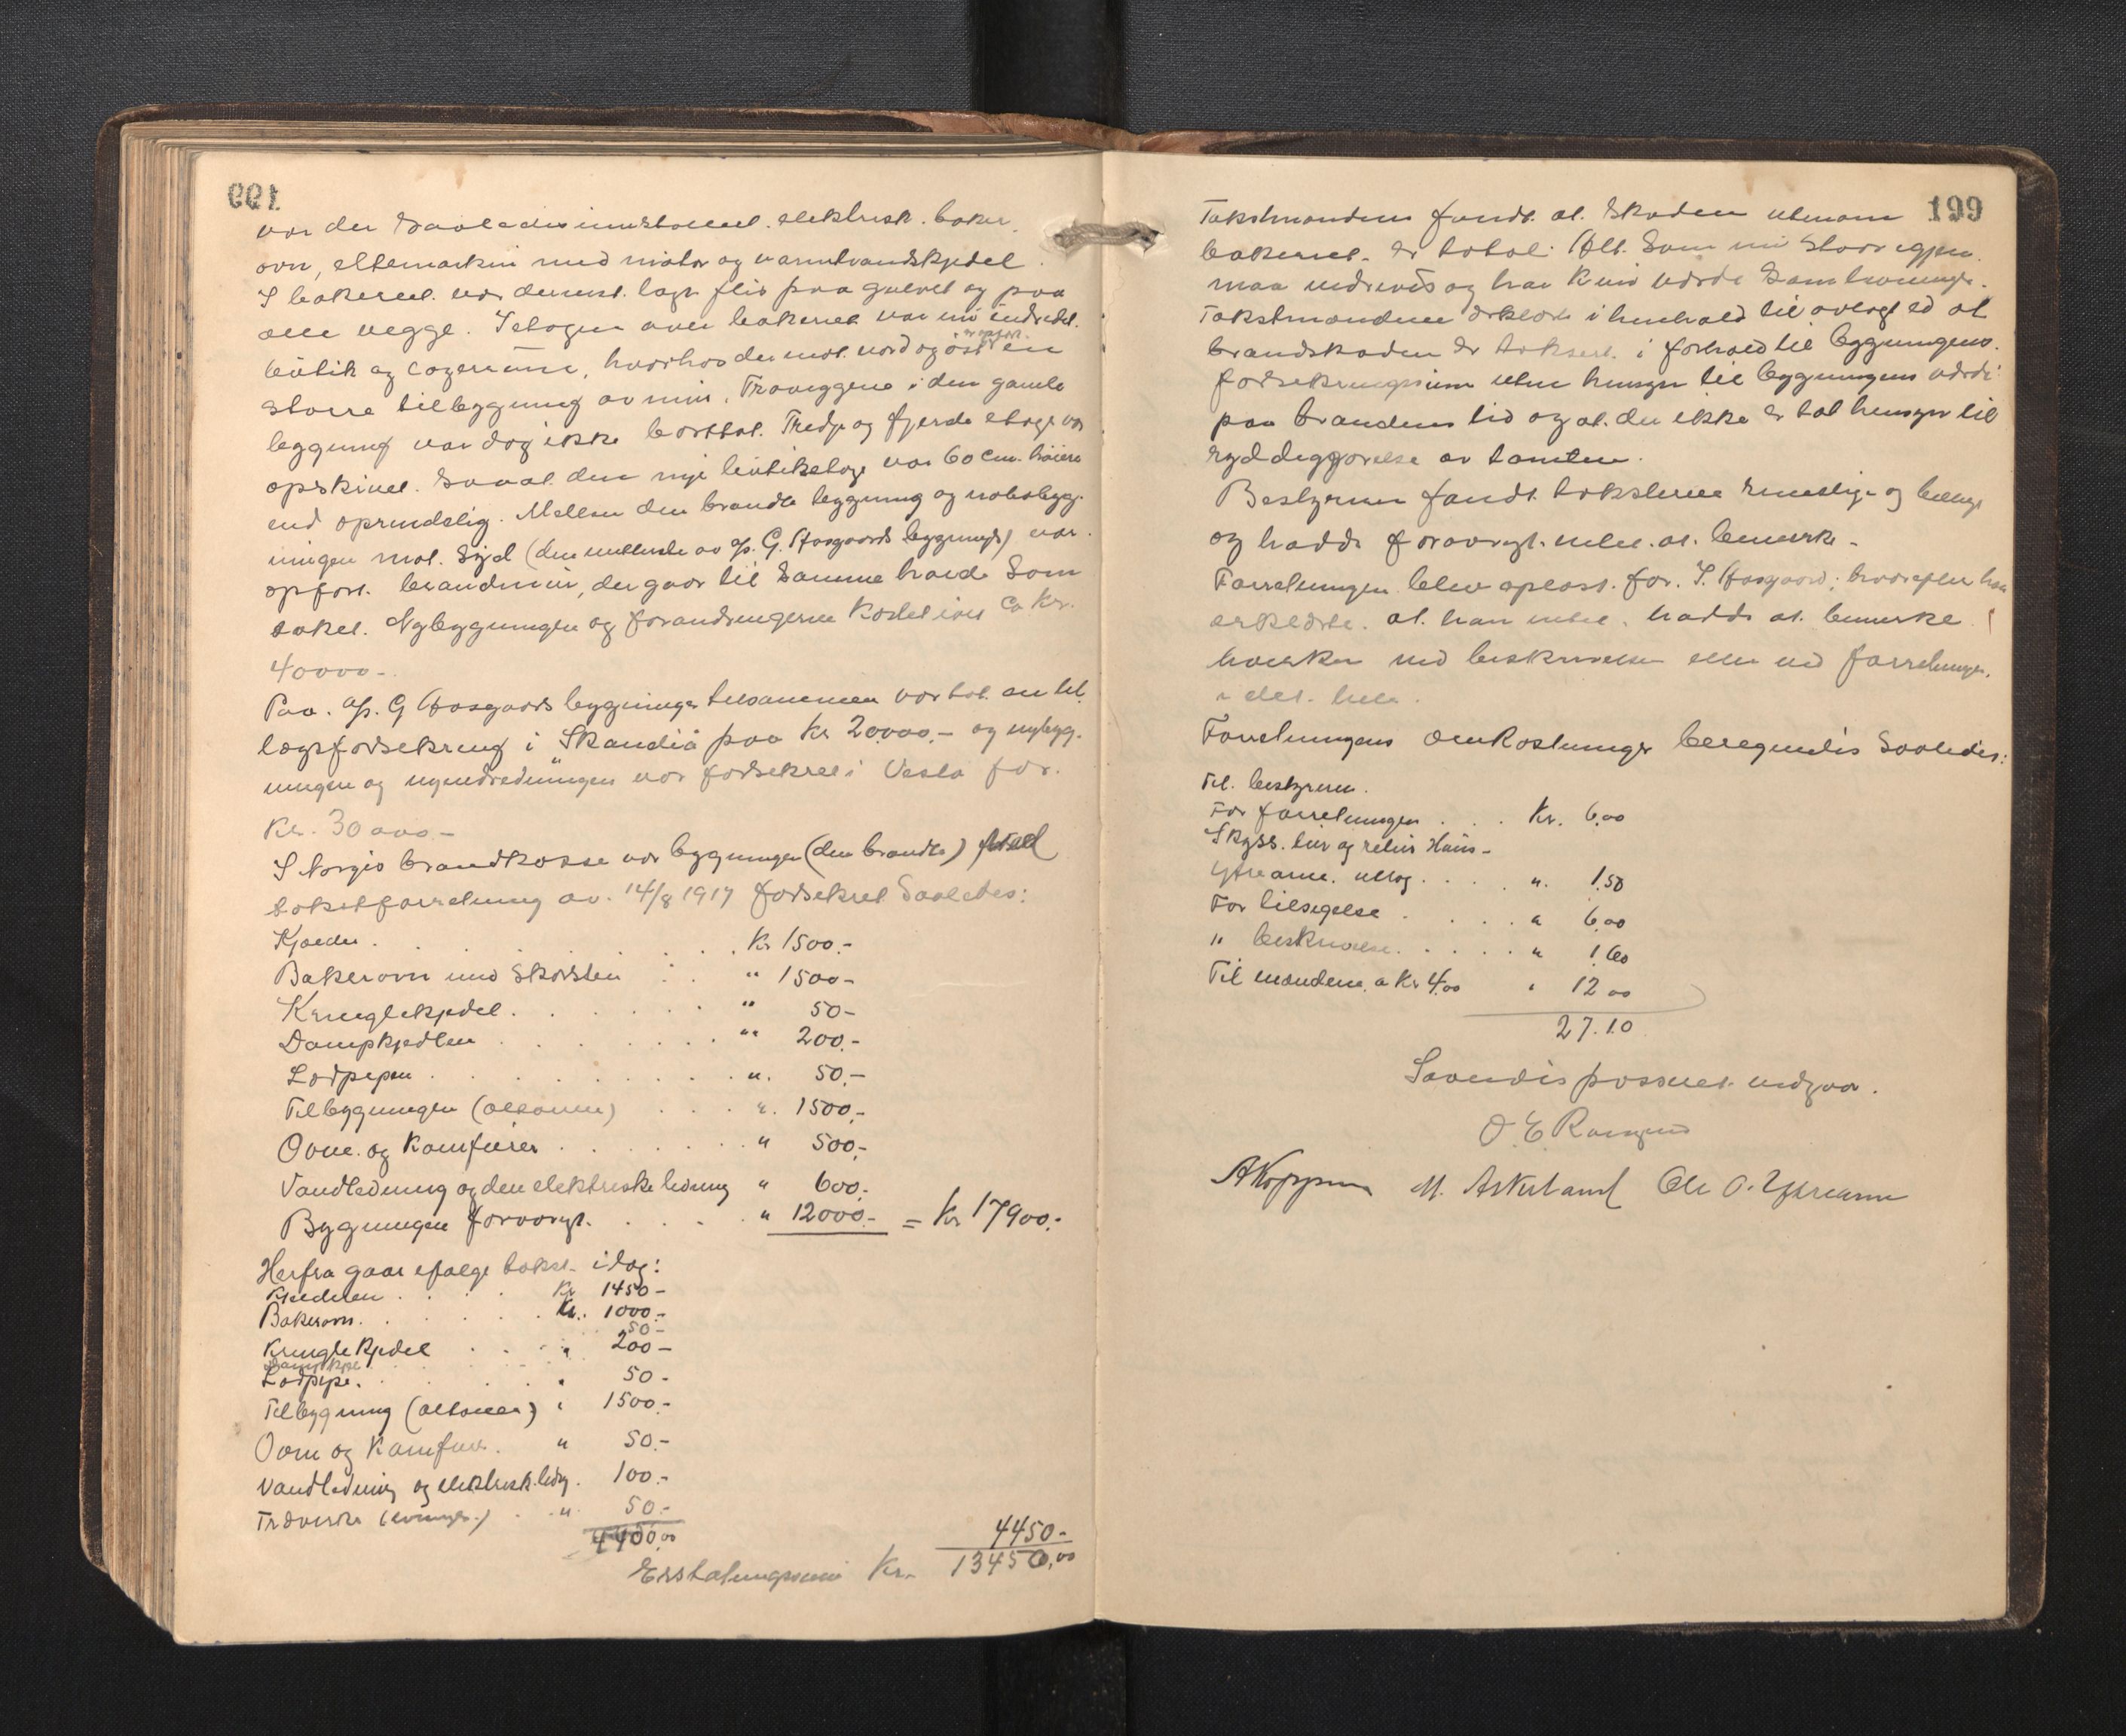 199
var der saaledes innstalleret elektrisk baker-
ovn, eltemaskin med motor og varmtvandskjedel.
I bakeriet var dernæst lagt flis paa gulvet og paa
alle vegge. I etagen over bakeriet var ny indredet
er opført
butik og lagerrum, hvorhos der mot nord og øst en
større tilbygning av mur. Træveggene i den gamle
bygning var dog ikke borttat. Tredje og fjerde etage var
opskivet. Samt den nye butiketage var 60 cm. høiere
end oprindelig. Mellem den brændte bygning og nabobygg-
ningen mot syd (den midterste av G. Aasgaards bygninger) var
opført brandmur, der gaar til samme høide som
taket. Nybygningen og forandringerne kostet ialt ca kr.
40000.-
Paa G Aasgaards bygninger tilsammen var tat en til-
lægsforsikring i "Skandia" paa kr 20000.- og nybyg-
ningen og nyindredningen var forsikret i Vesta for
Kr. 30000.-
I Norges brandkasse var bygningen (den brændte)
takstforretning av 14/8 1917 forsikret saaledes:
Kjælder . . . . Kr 1500.-
Bakerovn med skorsten . . " 1500-
Kringlekjedel . . . . " 50-
Dampkjedlen . . . . " 200.-
Lodpipen . . . . " 50.-
Tilbygningen (altanen) . . . " 1500.-
Ovne og Komfurer . . . . " 500.-
Vandledning og den elektriske ledning " 600.-
Bygningen forøvrigt . . . " 12000.- = Kr 17900.-
Herfra gaar ifølge takst idag:
Kjelderen . . . Kr 1450-
Bakerovn . . . Kr. 1000.-
50-
Kringlekjedel . . . " 200-
Dampkjel
Lodpipe . . . " 50-
Tilbygning (altanen) " 1500.-
Ovn og Komfur . " 50.-
Vandledning og elektrisk ledn. 100.-
Træverke . " 50.-
4450,00 4450-
Erstatningssum Kr. 13450,00
199
Takstmændene fandt at skaden utenom
bakeriet er total. Alt som nu staar igjen
maa nedrives og har kun værdi
Takstmændene erklærte i henhold til avlagt ed at
brandskaden er taksert i forhold til bygningens
forsikringssum uten hensyn til bygningens værdi
paa brandens tid og at der ikke er tat hensyn til
ryddiggjørelse av tomten.
Bestyreren fandt taksterne rimelige og billige
og hadde forøvrigt intet at bemerke.
Forretningen blev oplæst for I. Aasgaard, hvorefter han
erklærte at han intet hadde at bemerke
hverken ved beskrivelsen eller ved forretningen
i det hele.
Forretningens omkostninger beregnedes saaledes:
Til bestyreren.
For forretningen . . . Kr. 6,00
Skyss tur og retur Haus-
Ytrearne utlæg . . . . " 1,50
For tilsigelse . . . . " 6,00
" beskrivelse . . . . " 1,60
Til mændene a Kr 4,00 " 12,00
27.10
Saaledes passert medgaar.
O. E.
AKoppen M. Askeland Ole O. Ytrearne